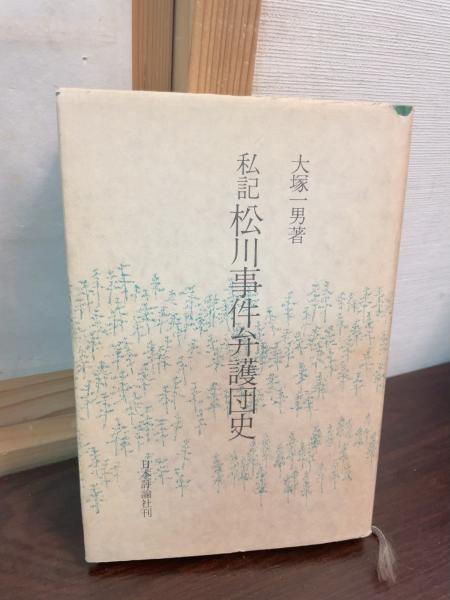 大塚一男著
私記 松川事件弁護団史
日本評論社刊